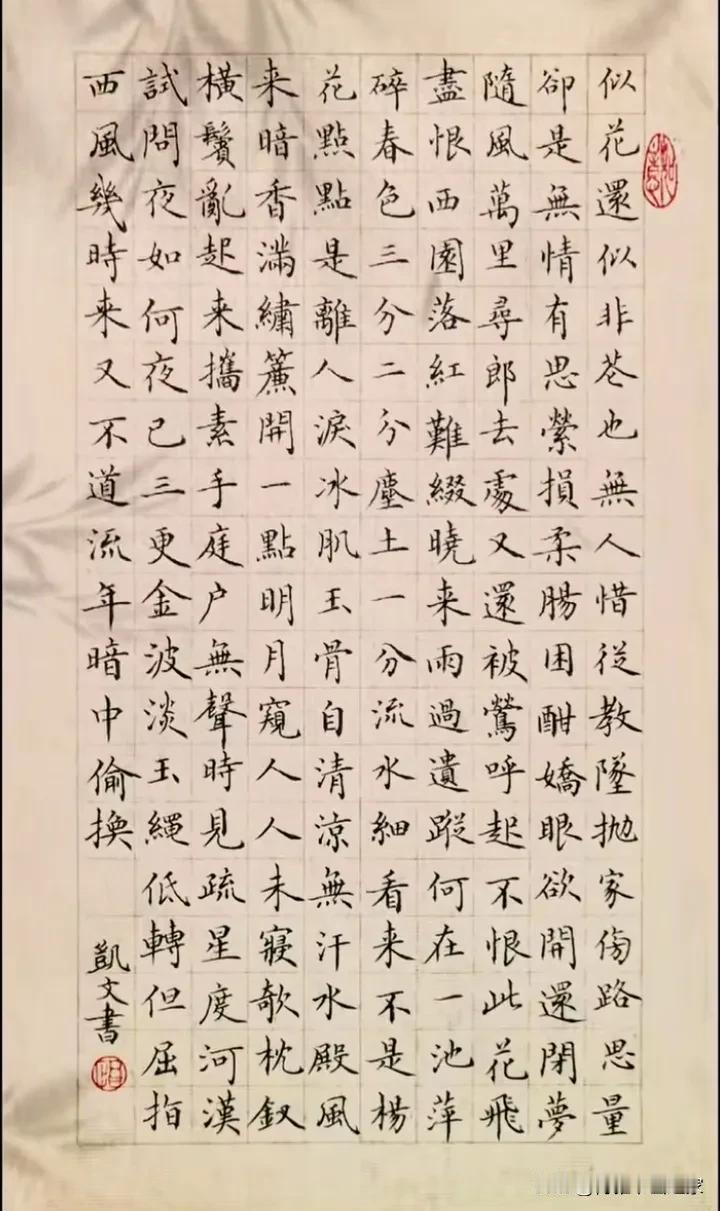 似花還似非花也無人惜從教墜抛家傍路思量
卻是無情有思縈損柔腸困酣嬌眼欲開還閉夢
隨風萬里尋郎去處又還被鶯呼起不恨此花飛
盡恨西園落紅難綴曉来雨過遺蹤何在一池萍
碎春色三分二分塵土一分流水細看来不是楊
花點點是離人淚冰肌玉骨自清涼無汗水殿風
来暗香滿繡簾開一點明月窺人人未寢欹枕釵
橫鬢亂起来攜素手庭户無聲時見疏星度河漢
試問夜如何夜已三更金波淡玉繩低轉但屈指
西風幾時来又不道流年暗中偷換
凱文書